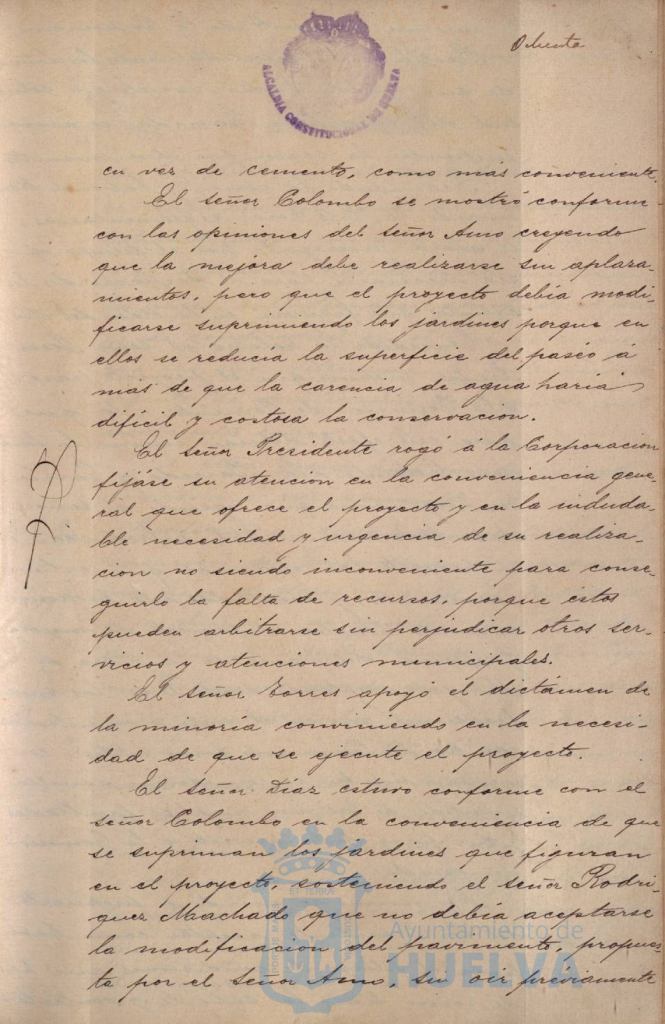 Ochenta
ALCALDIA CONSTITUCIONAL DE HUELVA
en vez de cemento, como más conveniente.
El señor Colombo se mostró conforme
con las opiniones del señor Amo creyendo
que la mejora debe realizarse sin aplaza-
mientos, pero que el proyecto debía modi-
ficarse suprimiendo los jardines porque en
ellos se reducía la superficie del paseo á
más de que la carencia de agua haría
difícil y costosa la conservacion.
El señor Presidente rogó á la Corporacion
fijáse su atencion en la conveniencia gene-
ral que ofrece el proyecto y en la induda-
ble necesidad y urgencia de su realiza-
cion no siendo inconveniente para conse-
guirlo la falta de recursos, porque éstos
pueden arbitrarse sin perjudicar otros ser-
vicios y atenciones municipales.
El señor Torres apoyó el dictámen de
la minoría conviniendo en la necesi-
dad de que se ejecute el proyecto.
El señor Díaz estuvo conforme con el
señor Colombo en la conveniencia de que
se supriman los jardines que figuran
en el proyecto, sosteniendo el señor Rodri-
guez Machado que no debía aceptarse
la modificacion del pavimento, propues-
ta por el señor Amo, sin oir préviamente
Ayuntamiento de
HUELVA